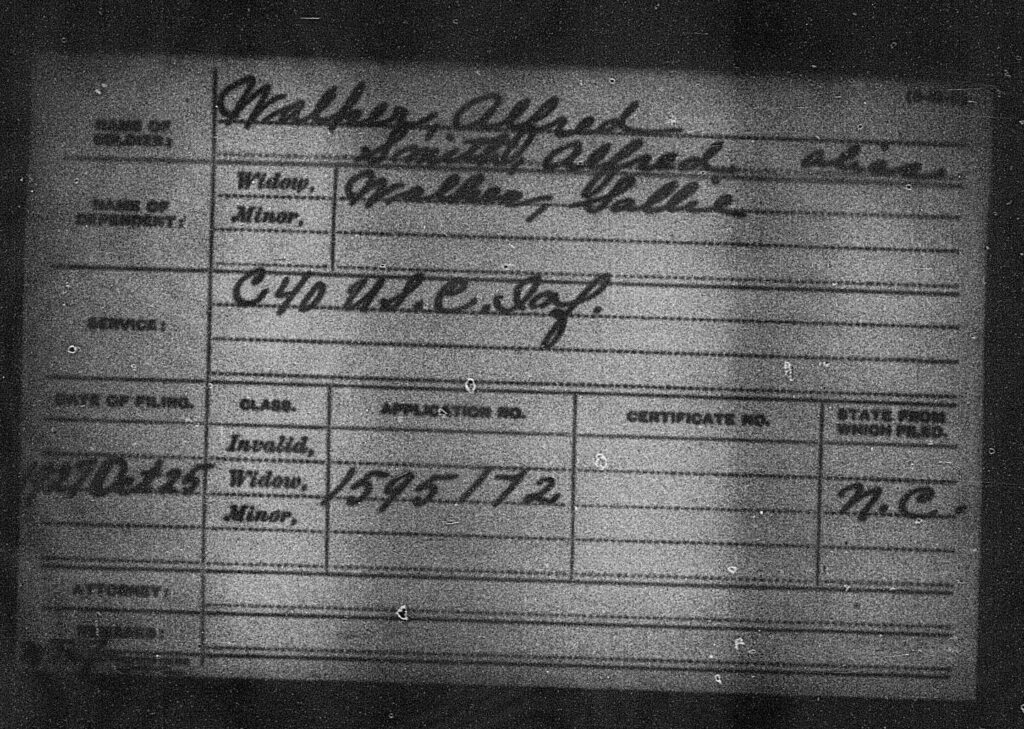 Walker, Alfred
NAME OF SOLDIER:
Smith, Alfred, alias.
NAME OF DEPENDENT:
Widow, Walker, Sallie
Minor,
SERVICE:
C 40 U.S.C. Inf.
DATE OF FILING. CLASS. APPLICATION NO. CERTIFICATE NO. STATE FROM WHICH FILED.
Invalid,
1927 Oct 25 Widow, 1595172 N.C.
Minor,
ATTORNEY:
REMARKS: